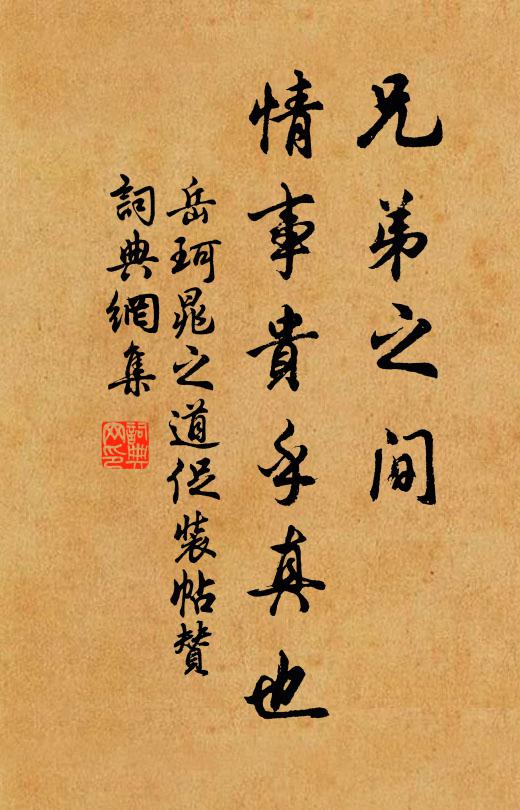 兄弟之间
情事貴乎真也
岳珂晁之道促装帖贊
詞典網集
詞典網印